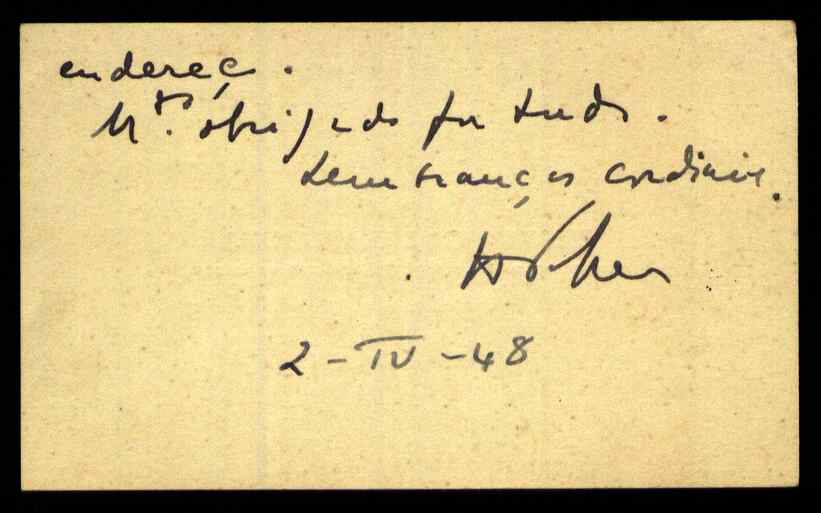 endereço.
M.to obrigado por tudo.
Lembranças cordiais.
2-IV-48